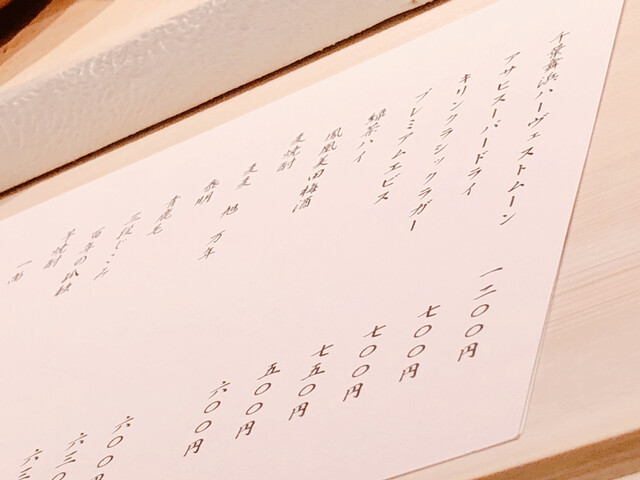 千葉舞浜ハーヴェストムーン 一二〇〇円
アサヒスーパードライ 七〇〇円
キリンクラシックラガー 七〇〇円
プレミアムエビス 七五〇円
緑茶ハイ 五〇〇円
鳳凰美田梅酒 六〇〇円
麦焼酎
麦麦 旭 万年 六〇〇円
兼明 六三〇
青鹿毛 六三
三段じこみ
百年の孤独
芋焼酎
一尚